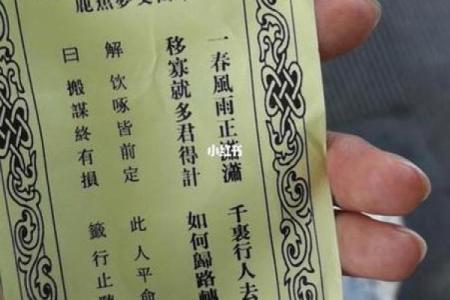 一春風雨正瀟瀟 千裏行人去
移寡就多君得計 如何歸路轉
解 饮啄皆前定 此人平
曰 搬謀終有損 籤行止
小红书